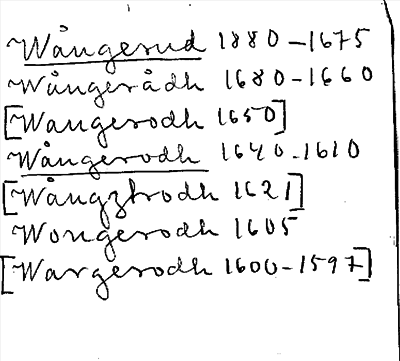 Wångerud 1880-1675
Wångerådh 1680-1660
[Wangerodh 1650]
Wångerodh 1640-1610
[Wångztrodh 1621]
Wongerodh 1605
[Wargerodh 1600-1597]